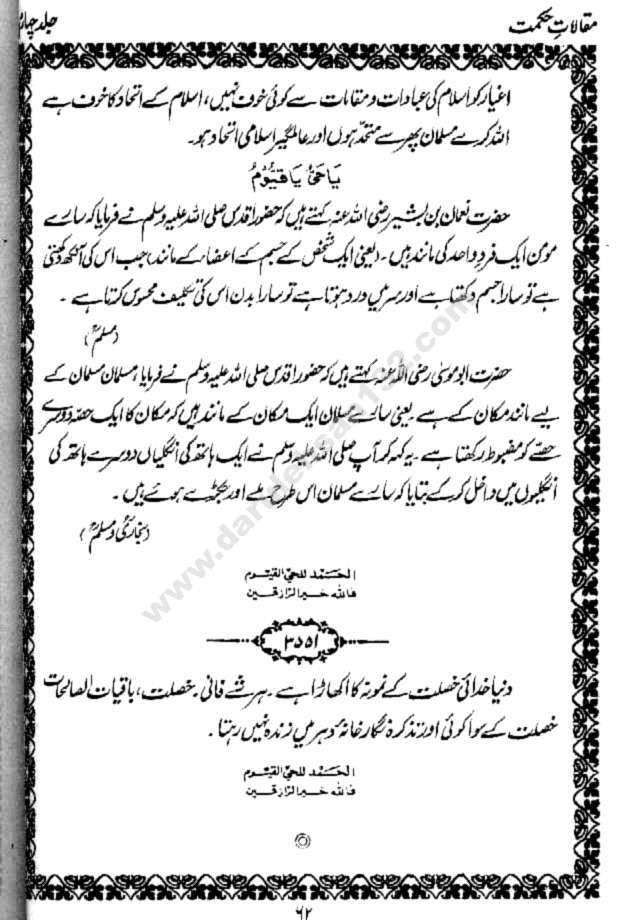 مقالاتِ حکمت
جلد چہار
اغیار کو اسلام کی عبادات و مقامات سے کوئی خوف نہیں، اسلام کے اتحاد کا خوف ہے
اللہ کرے مسلمان پھر سے متحد ہوں اور عالمگیر اسلامی اتحاد ہو۔
یَا حَیُّ یَا قَیُّوْمُ
حضرت نعمان بن بشیر رضی اللہ عنہ کہتے ہیں کہ حضورِ اقدس صلی اللہ علیہ وسلم نے فرمایا کہ سارے
مومن ایک فردِ واحد کی مانند ہیں۔ (یعنی ایک شخص کے جسم کے اعضاء کے مانند) جب اس کی آنکھ دکھتی
ہے تو سارا جسم دکھتا ہے اور سر میں درد ہوتا ہے تو سارا بدن اس کی تکلیف محسوس کرتا ہے۔
(مسلمؒ)
حضرت ابو موسیٰ رضی اللہ عنہ کہتے ہیں کہ حضورِ اقدس صلی اللہ علیہ وسلم نے فرمایا، مسلمان مسلمان کے
لیے مانند مکان کے ہے یعنی سارے مسلمان ایک مکان کے مانند ہیں کہ مکان کا ایک حصہ دوسرے
حصّے کو مضبوط رکھتا ہے۔ یہ کہہ کر آپ صلی اللہ علیہ وسلم نے ایک ہاتھ کی انگلیاں دوسرے ہاتھ کی
انگلیوں میں داخل کر کے بتایا کہ سارے مسلمان اس طرح ملے اور جکڑے ہوئے ہیں۔
(بخاریؒ و مسلمؒ)
الحمد للحی القیوم
فاللہ خیر الرازقین
۳۵۵۱
دنیا خدائی خصلت کے نمونہ کا اکھاڑا ہے۔ ہر شے فانی۔ خصلت، باقیات الصالحات
خصلت کے سوا کوئی اور تذکرہ نگار خانۂ دہر میں زندہ نہیں رہتا۔
الحمد للحی القیوم
فاللہ خیر الرازقین
۶۲